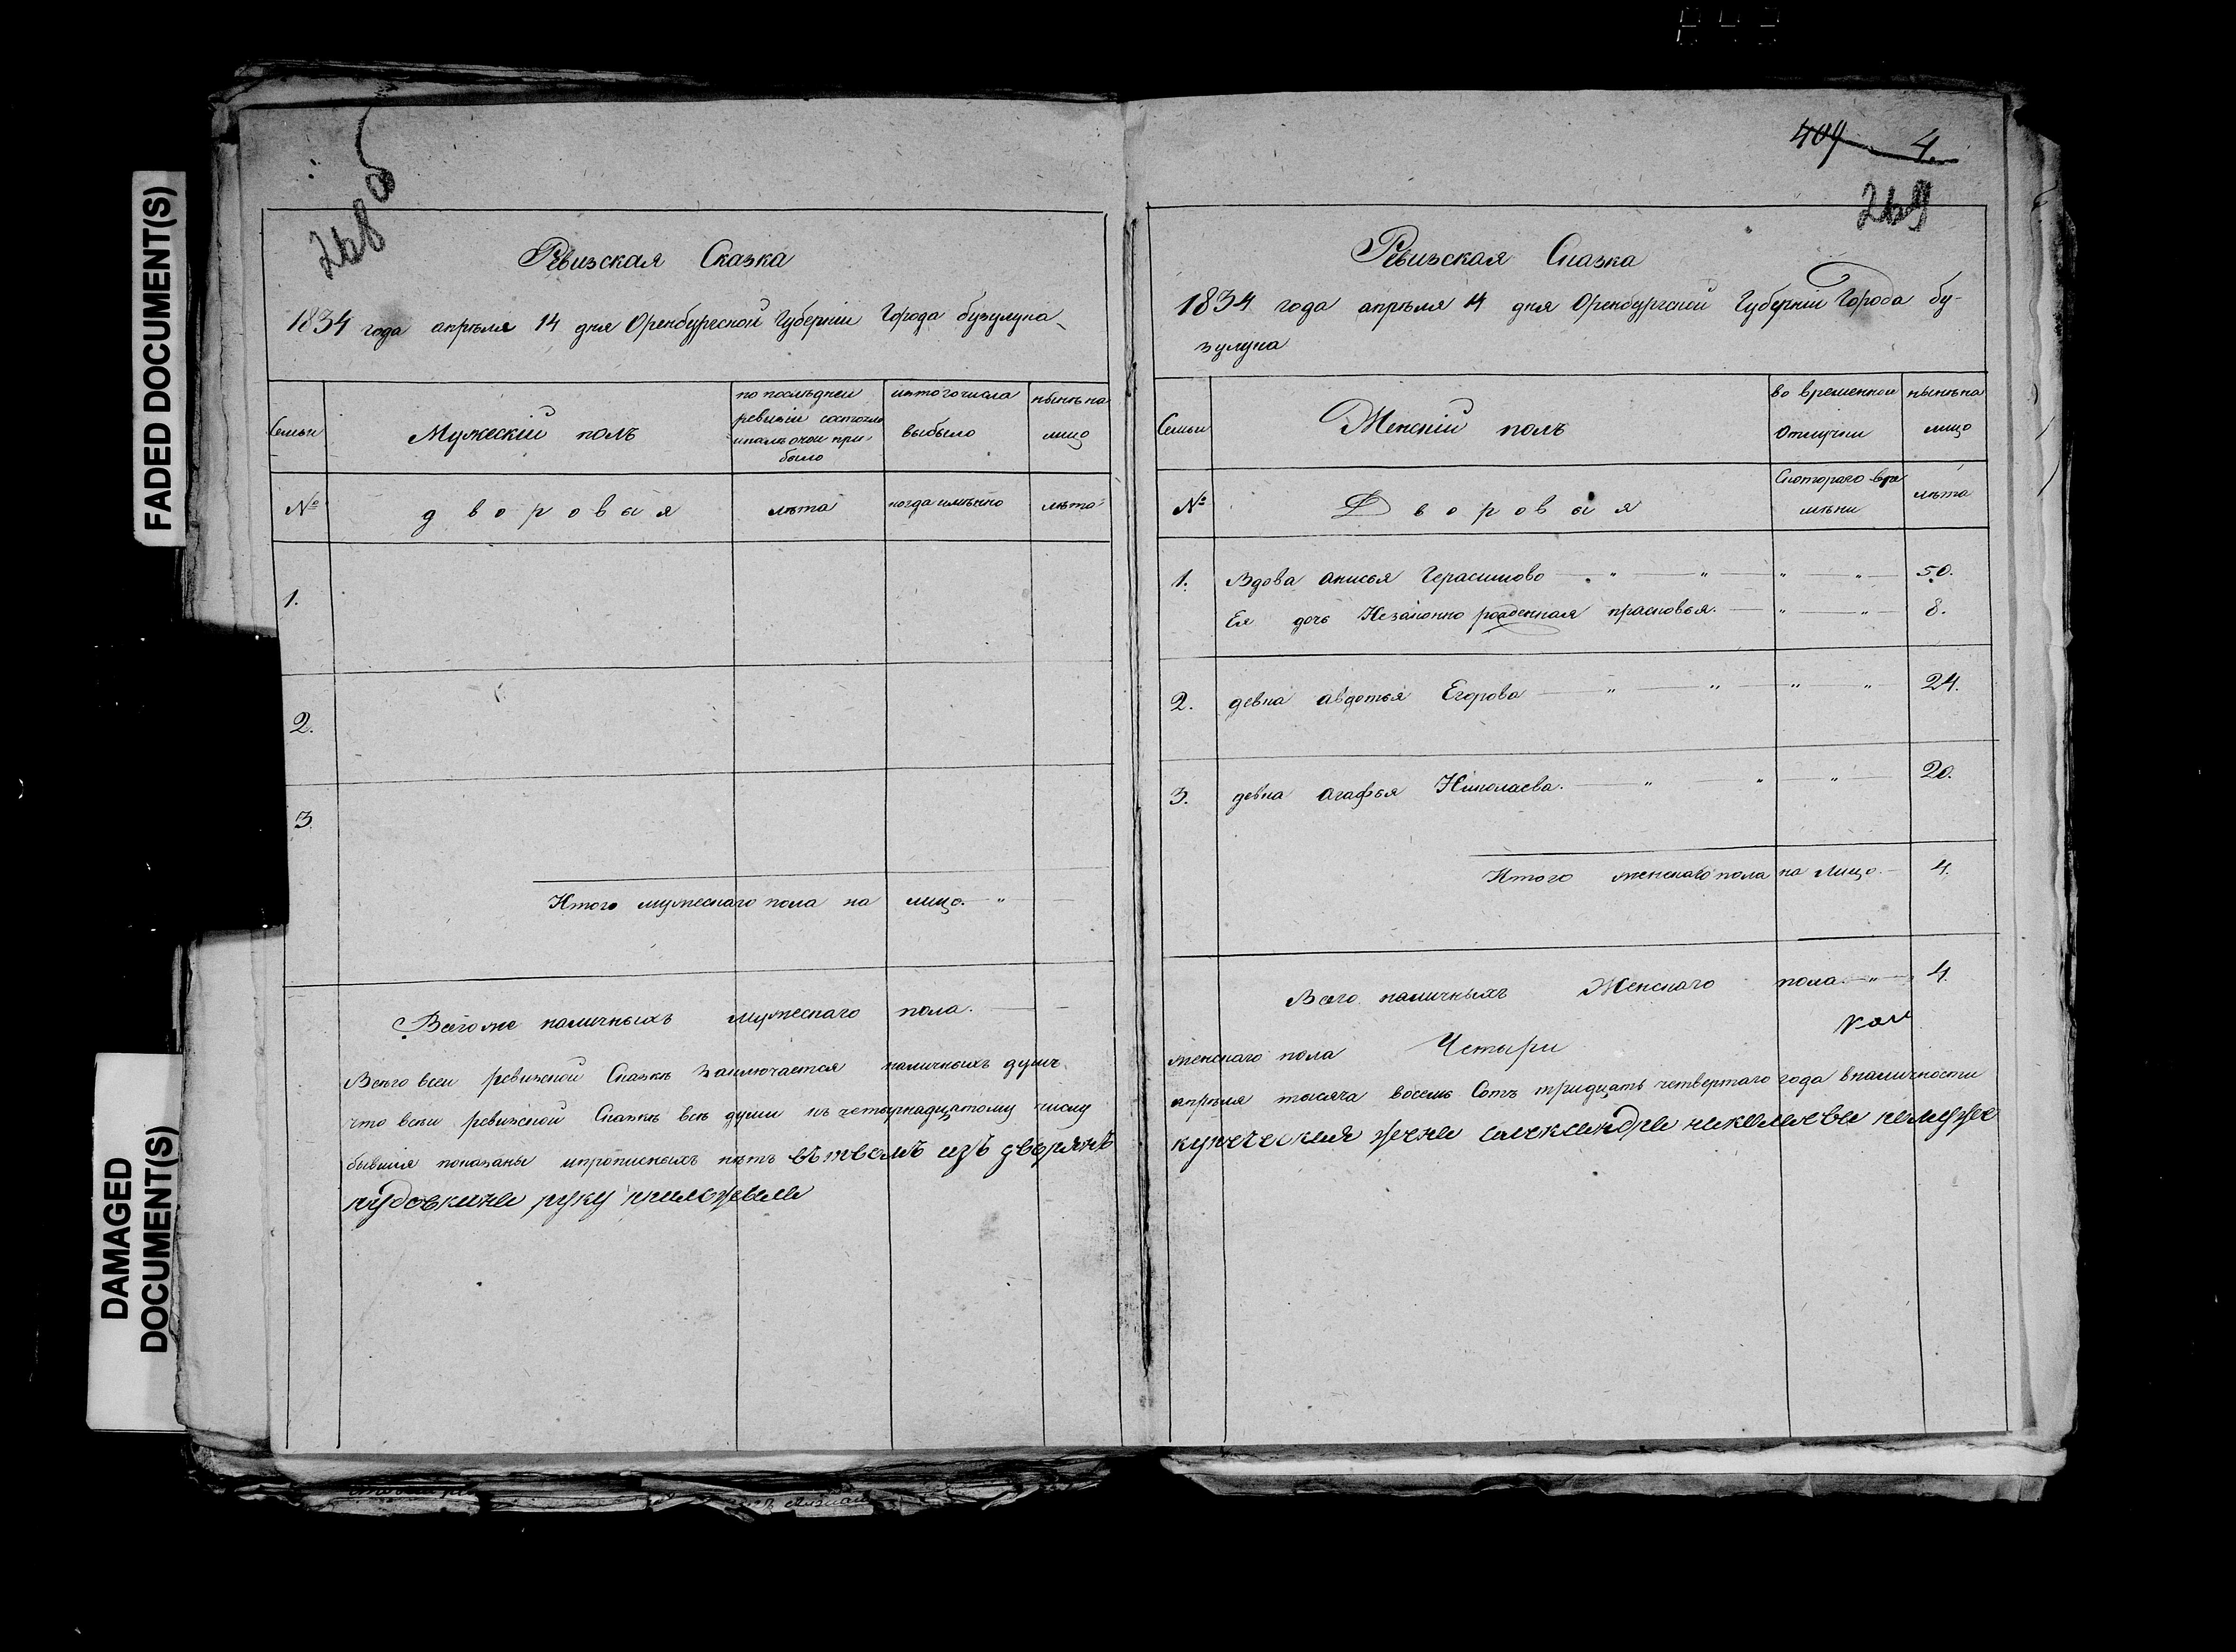 FADED DOCUMENT(S)
DAMAGED
DOCUMENT(S)
268 об
Ревизская Сказка
1834 года апрѣля 14 дня Оренбургской Губерніи Города бузулука
Семьи
Мужескій полъ
по послѣднеи
ревизіи состояло
и послѣ онои при-
было
изтого числа
выбыло
нынѣ на
лицо
№
дворовыя
лѣта
когда имѣнно
лѣта
1.
2.
3.
Итого мужескаго пола на лицо.
Всегоже наличныхъ мужескаго пола.
Всѣго всеи ревизской Сказкѣ заключается наличныхъ душъ
что всѣи ревизской Сказкѣ всѣ души къ четырнадцатому числу
бывшія показаны ипрописныхъ нѣтъ въ томъ изъ дворянъ
руку приложила
409 4.
269
Ревизская Сказка
1834 года апрѣля 14 дня Оренбургской Губерніи Города бу-
зулука
Семьи
Женскій полъ
во временнои
отлучки
нынѣ на
лицо
№
Дворовыя
Скотораго вре
мѣни
лѣта
1. Вдова анисья Герасимово 50.
Ея дочь Незаконно рожденная прасковья. 8.
2. девка авдотья Егорова 24.
3. девка агафья Николаева. 20.
Итого женскаго пола на лицо. 4.
Всего наличныхъ Женскаго пола 4.
женскаго пола Четыри
апрѣля тысяча восемь Сотъ тридцать четвертаго года вналичности
купеческая жена александра